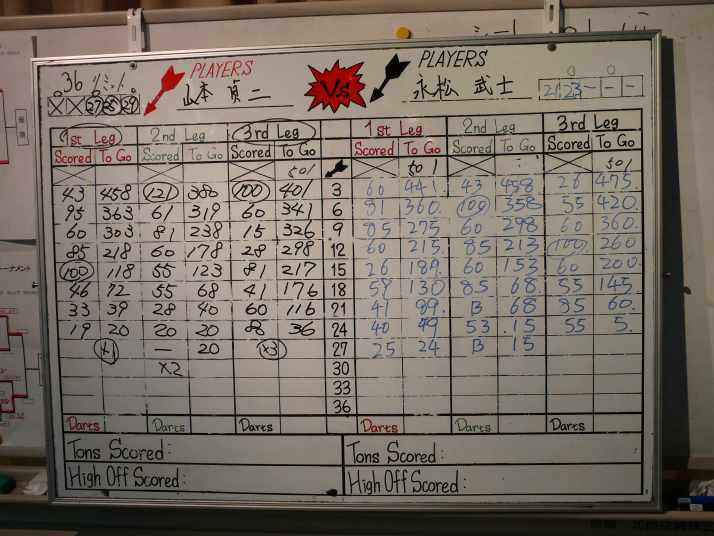 36
27 25 29
PLAYERS
山本 貞二
Vs
PLAYERS
永松 武士
21 23 - - -
1st Leg 2nd Leg 3rd Leg 1st Leg 2nd Leg 3rd Leg
Scored To Go Scored To Go Scored To Go Scored To Go Scored To Go Scored To Go
501 501 501
43 458 121 380 100 401 3 60 441 43 458 26 475
95 363 61 319 60 341 6 81 360 100 358 55 420
60 303 81 238 15 326 9 85 275 60 298 60 360
85 218 60 178 28 298 12 60 215 85 213 100 260
100 118 55 123 81 217 15 26 189 60 153 60 200
46 72 55 68 41 176 18 59 130 85 68 55 145
33 39 28 40 60 116 21 41 89 B 68 85 60
19 20 20 20 80 36 24 40 49 53 15 55 5
×1 - 20 ×3 27 25 24 B 15
×2 30
33
36
Darts Darts Darts Darts Darts Darts
Tons Scored: Tons Scored:
High Off Scored: High Off Scored: